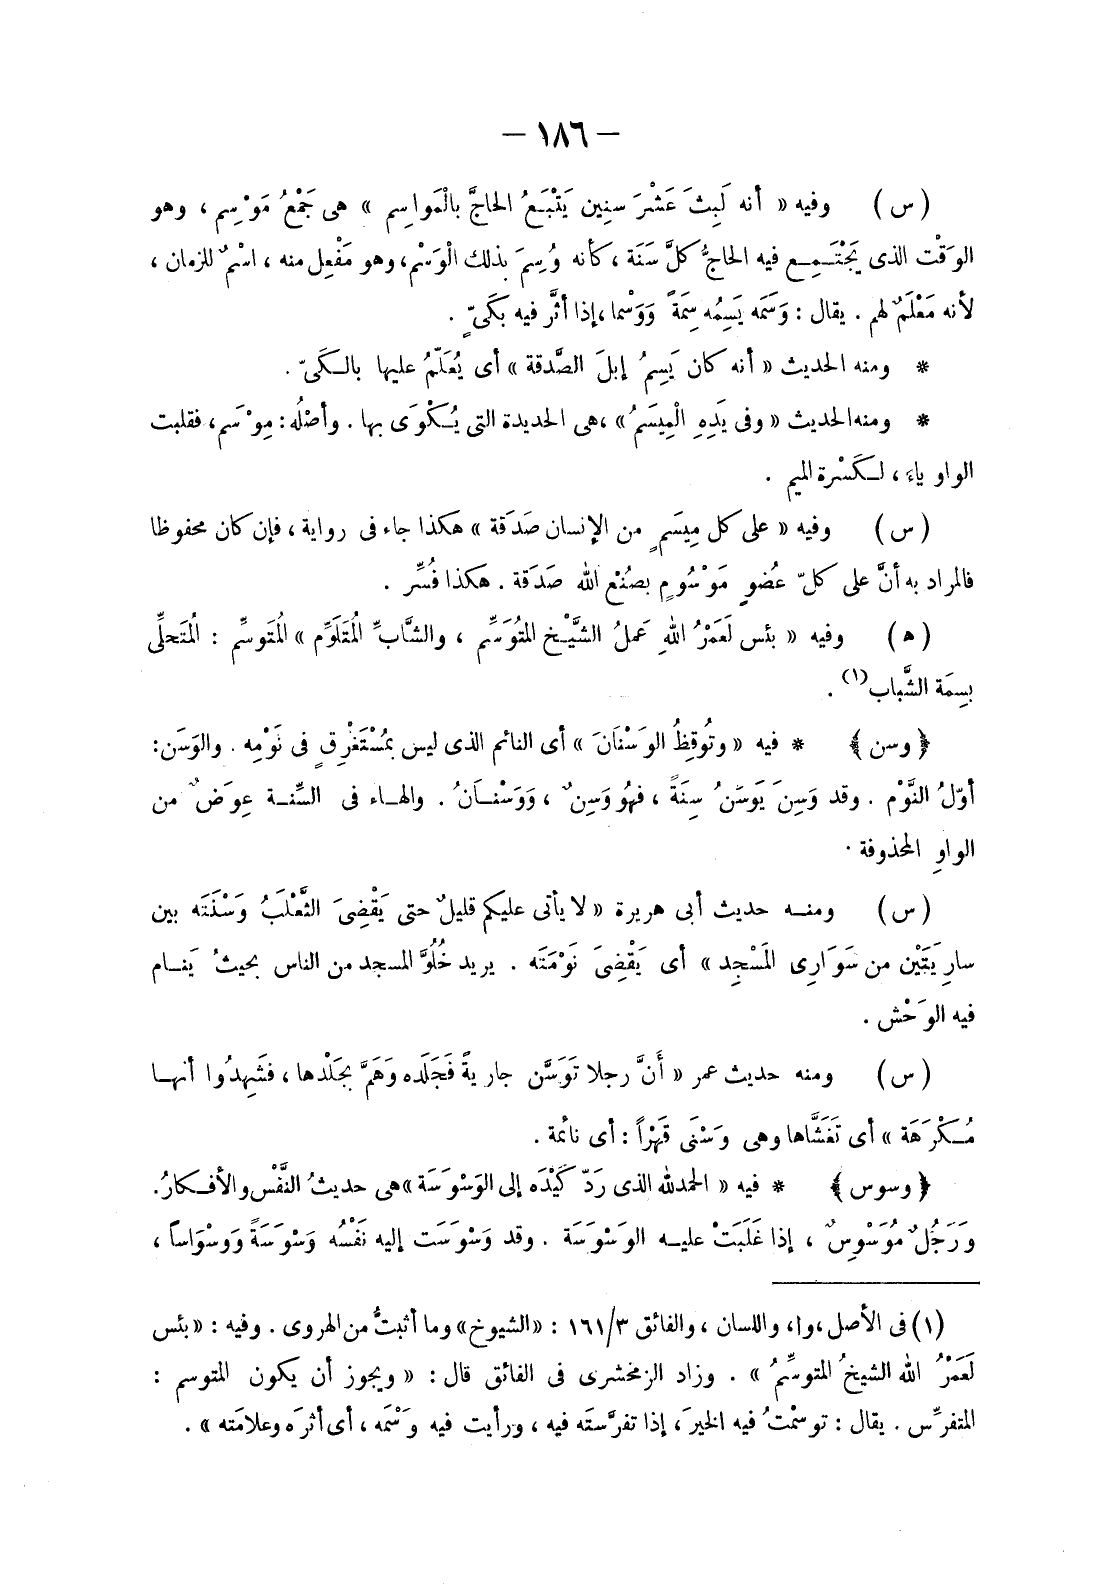 — ١٨٦ —
( س ) وفيه « أنه لَبِثَ عَشْرَ سنِين يَتْبَعُ الحاجَّ بالْمَواسِم » هى جَمْعُ مَوْسِم ، وهو
الوَقْت الذى يَجْتَمِع فيه الحاجُّ كلَّ سَنَة ، كأنه وُسِمَ بذلك الْوَسْم، وهو مَفْعِل منه ، اسْمٌ للزمان ،
لأنه مَعْلَمٌ لهم . يقال : وَسَمَه يَسِمُه سِمَةً وَوَسْما ،إذا أثَّر فيه بَكَىّ .
* ومنه الحديث « أنه كان يَسِمُ إبلَ الصَّدقة » أى يُعَلّمُ عليها بالكَىّ .
* ومنه الحديث « وفى يَدِهِ الْمِيسَمُ » ،هى الحديدة التى يُكْوَى بها . وأصْلُه : مِوْسَم، فقلبت
الواو ياء ، لكَسْرة الميم .
( س ) وفيه « على كل مِيسَمٍ من الإنسان صَدَقة » هكذا جاء فى رواية ، فإن كان محفوظا
فالمراد به أنَّ على كلّ عُضوٍ مَوْسُومٍ بصُنْع الله صَدَقة . هكذا فُسِّر .
( ه ) وفيه « بئس لَعَمْرُ اللهِ عَملُ الشَّيْخ المتُوَسِّم ، والشَّابِّ الْمُتَلَوِّم » الْمُتَوسِّم : الْمُتَحلِّى
بسِمَة الشَّباب(١) .
﴿ وسن ﴾ * فيه « وتُوقِظُ الوَسْنَانَ » أى النائم الذى ليس بمُسْتَغْرِقٍ فى نَوْمِه . والوَسَن:
أوّلُ النَّوْم . وقد وَسِنَ يَوسَنُ سِنَةً ، فهُو وَسِنٌ ، ووَسْنانُ . والهاء فى السِّنة عِوَضٌ من
الواوِ المحذوفة .
( س ) ومنه حديث أبى هريرة « لا يأتى عليكم قليلٌ حتى يَقْضِىَ الثَّعْلَبُ وَسْنَتَه بين
سارِيَتَيْن من سَوَارِى المَسْجِد » أى يَقْضِىَ نَوْمَتَه . يريد خُلُوَّ المسجد من الناس بحيثُ يَنام
فيه الوَحْش .
( س ) ومنه حديث عمر « أَنَّ رجلا تَوَسَّن جاريةً فَجَلَده وَهَمَّ بجَلْدها ، فشَهِدُوا أنها
مُكْرَهَة » أى تَغَشَّاها وهى وَسْنَى قَهْراً : أى نائمة .
﴿ وسوس ﴾ * فيه « الحمدلله الذى رَدّ كَيْدَه إلى الوَسْوَسَة »هى حديثُ النَّفْس والأفكارُ.
وَرَجُلٌ مُوَسْوِسٌ ، إذا غَلَبَتْ عليه الوَسْوَسَة . وقد وَسْوَسَت إليه نَفْسُه وَسْوَسَةً ووسْوَاساً ،
(١) فى الأصل ،وا، واللسان ، والفائق ١٦١/٣ : «الشيوخ» وما أثبتُّ من الهروى . وفيه : «بئس
لَعَمْرُ الله الشيخُ المتوسِّمُ » . وزاد الزمخشرى فى الفائق قال : « ويجوز أن يكون المتوسم :
المتفرِّس . يقال : توسمْتُ فيه الخيرَ، إذا تفرَّستَه فيه ، ورأيت فيه وَسْمَه ، أى أثرَه وعلامَته » .